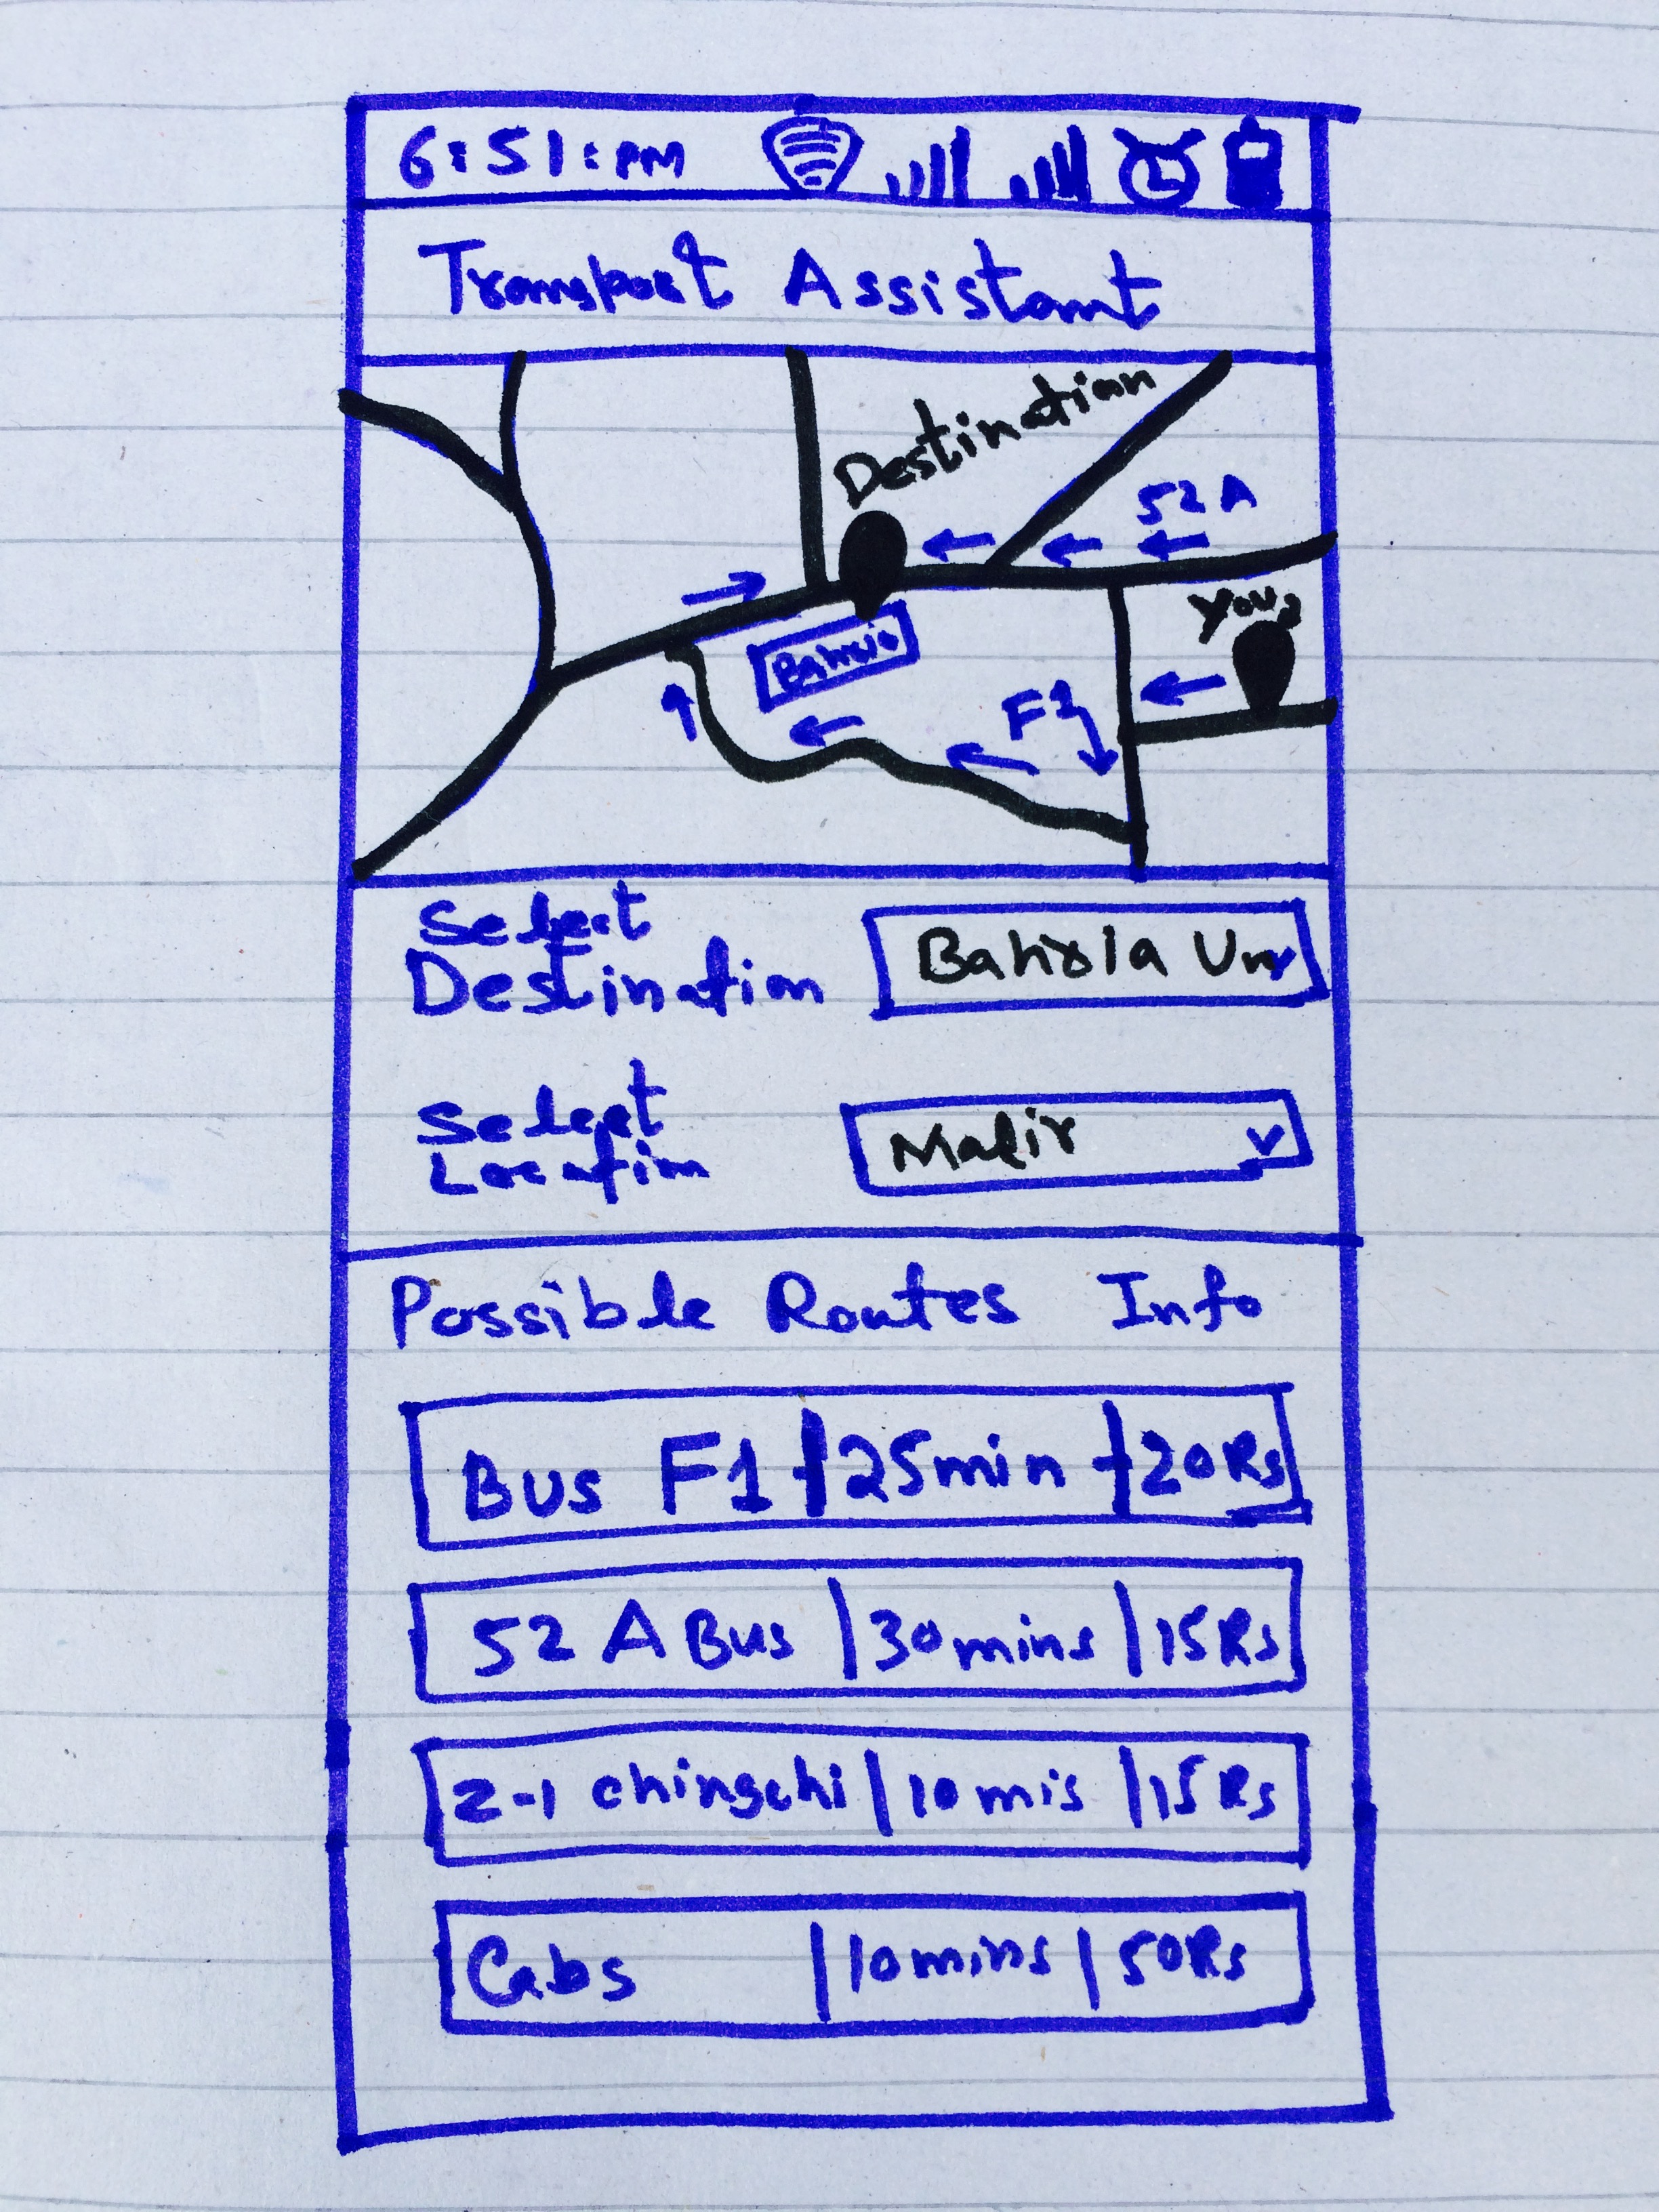 6:51:PM
Transport Assistant
Destination
52 A
You
Bahria
F1
Select
Destination
Bahria Uni
Select
Location
Malir
Possible Routes Info
Bus F1 | 25min | 20Rs
52 A Bus | 30mins | 15Rs
2-1 chingchi | 10 mis | 15 Rs
Cabs | 10mins | 50Rs